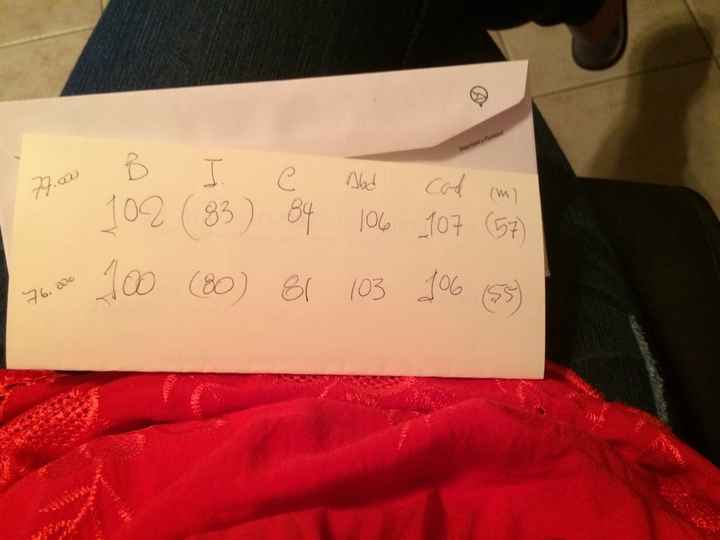 B I. C Abd Cad (m)
77.000 102 (83) 84 106 107 (57)
76.000 100 (80) 81 103 106 (55)